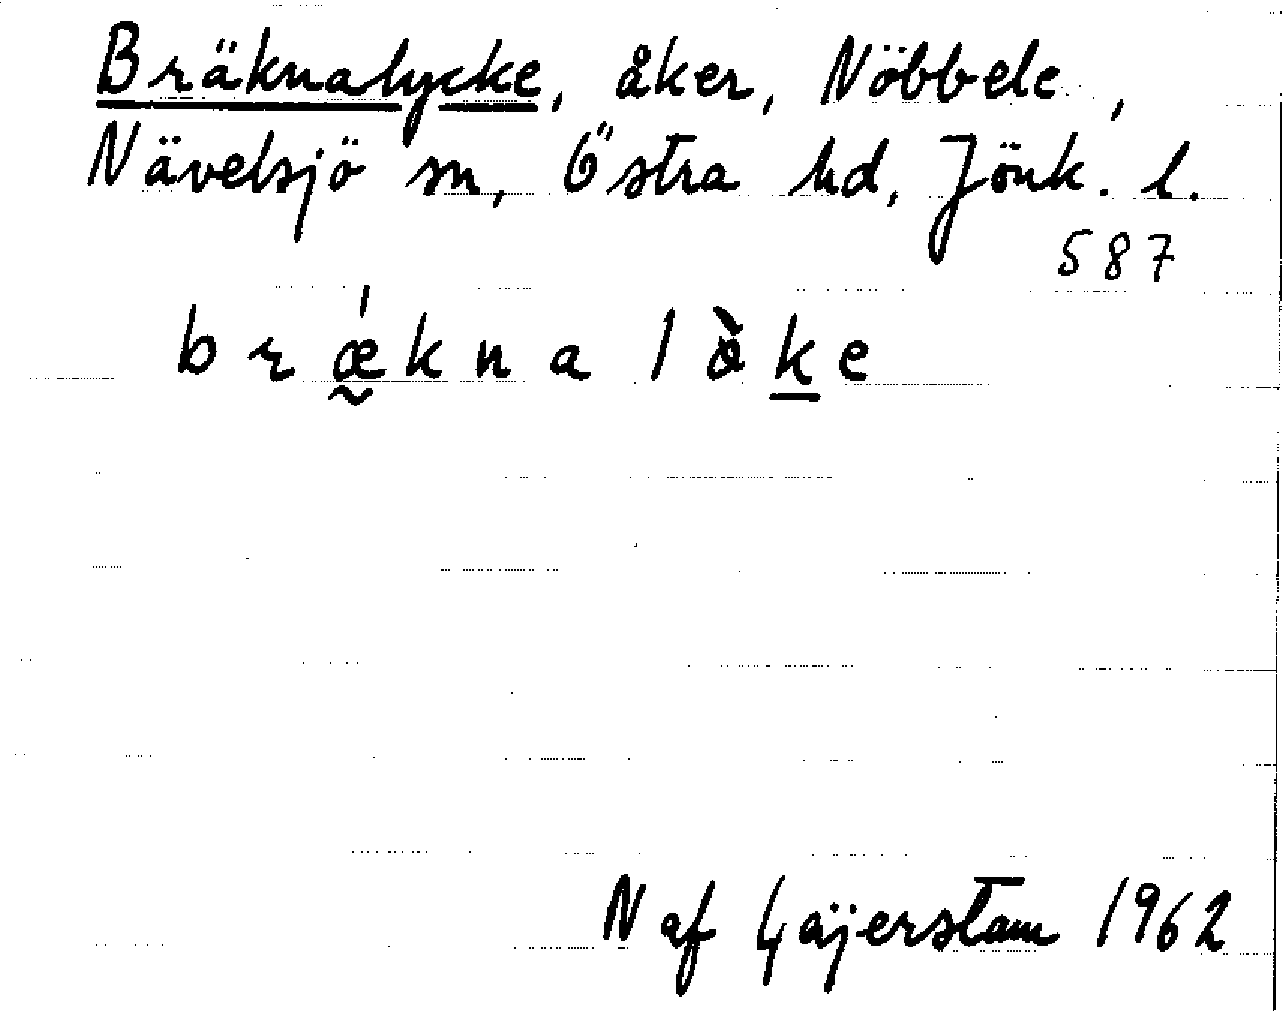 Bräknalycke, åker, Nöbbele,
Nävelsjö sn, Östra hd, Jönk. l.
587
brǽ̰knalòḵe
N af Gäijerstam 1962